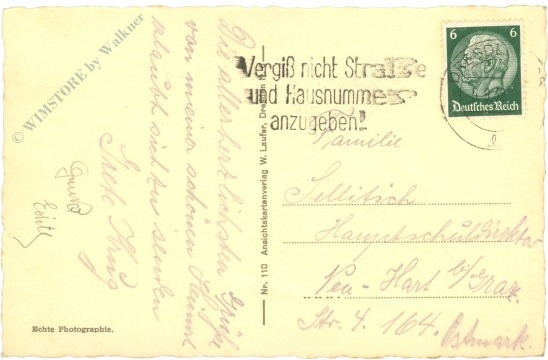 Die allerherzlichsten Grüße
von meiner schönen Heimat
erlaubt sich zu senden
Grete
Edith
Echte Photographie.
Nr. 110 Ansichtskartenverlag W. Laufer, Dresden
Vergiß nicht Straße
und Hausnummer
anzugeben!
DRESDEN
6 6
Deutsches Reich
Familie
Sellitsch
Hauptschuldirektor
Neu-Hart b/Graz.
Str. 4. 164. Ostmark.
© WIMSTORE by Walkner